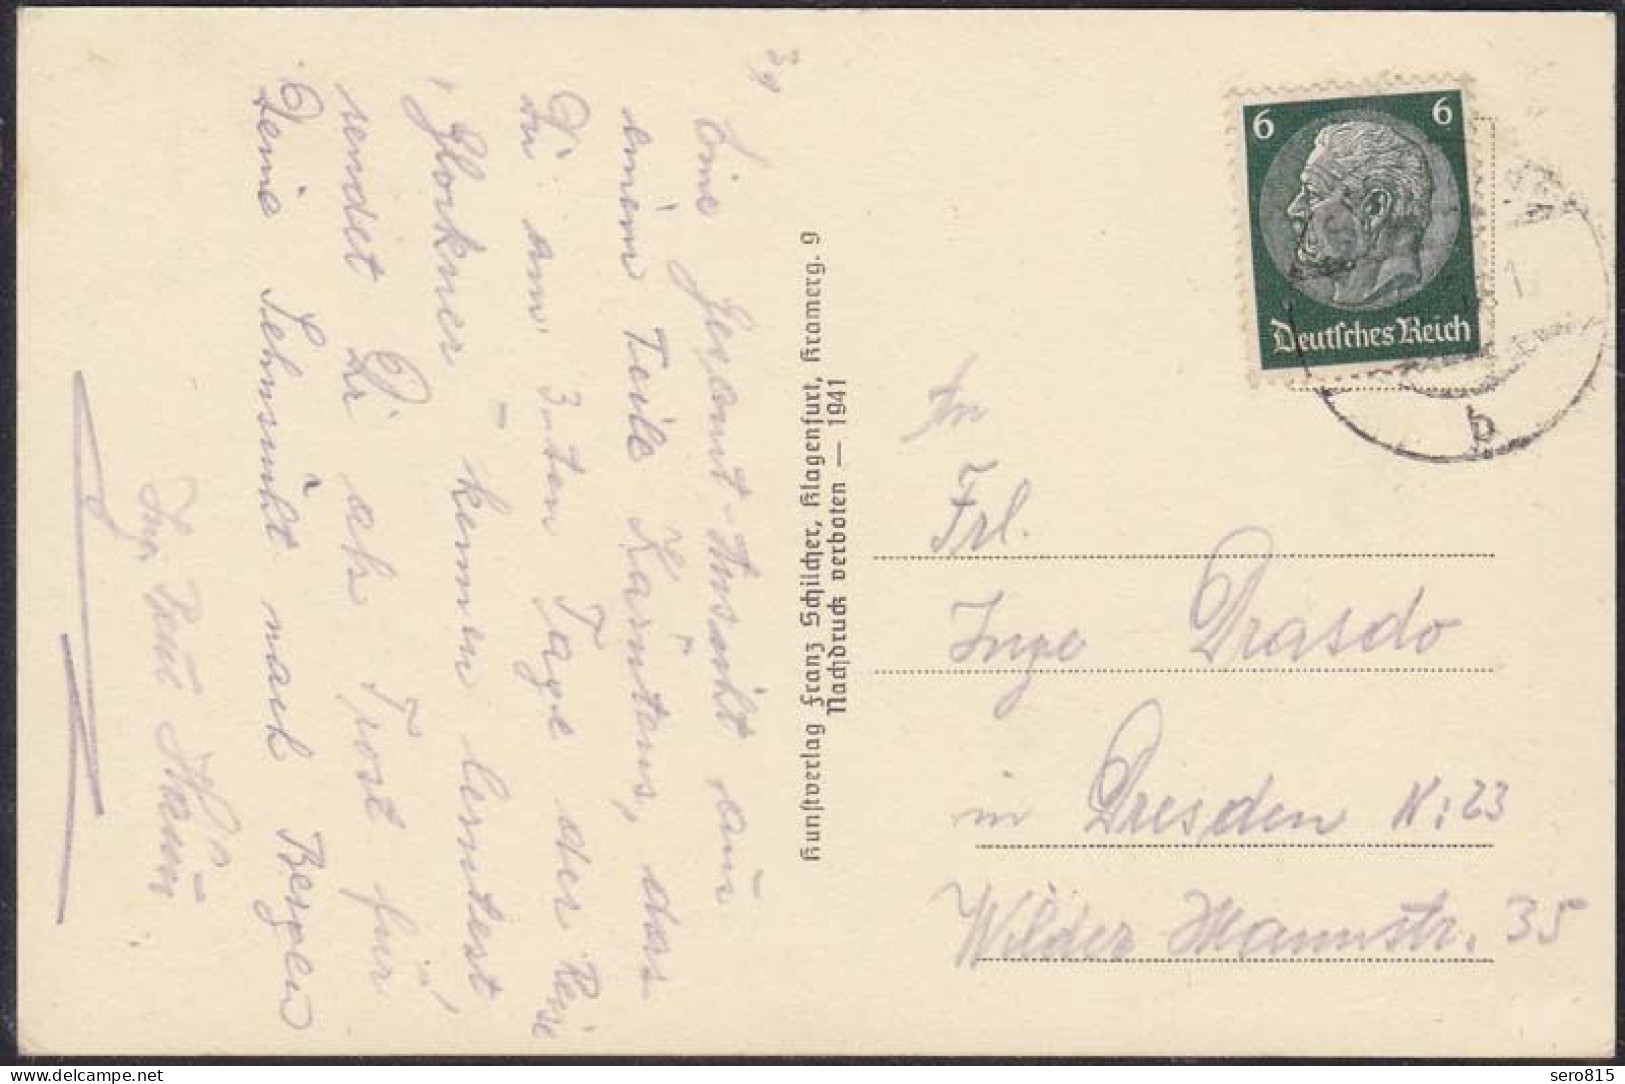 Eine Gesamt-Ansicht aus
einem Teile Kärntens, das
Du am 3-ten Tage der Reise
„Glockner“ - kennen lerntest,
sendet Dir als Trost für
Deine Sehnsucht nach Bergen
Ing.
Kunstverlag Franz Schilcher, Klagenfurt, Kramerg. 9
Nachdruck verboten — 1941
6 6
Deutsches Reich
b
An
Frl.
Inge Drasdo
in Dresden N: 23
Wilder Mannstr. 35
www.delcampe.net
sero815